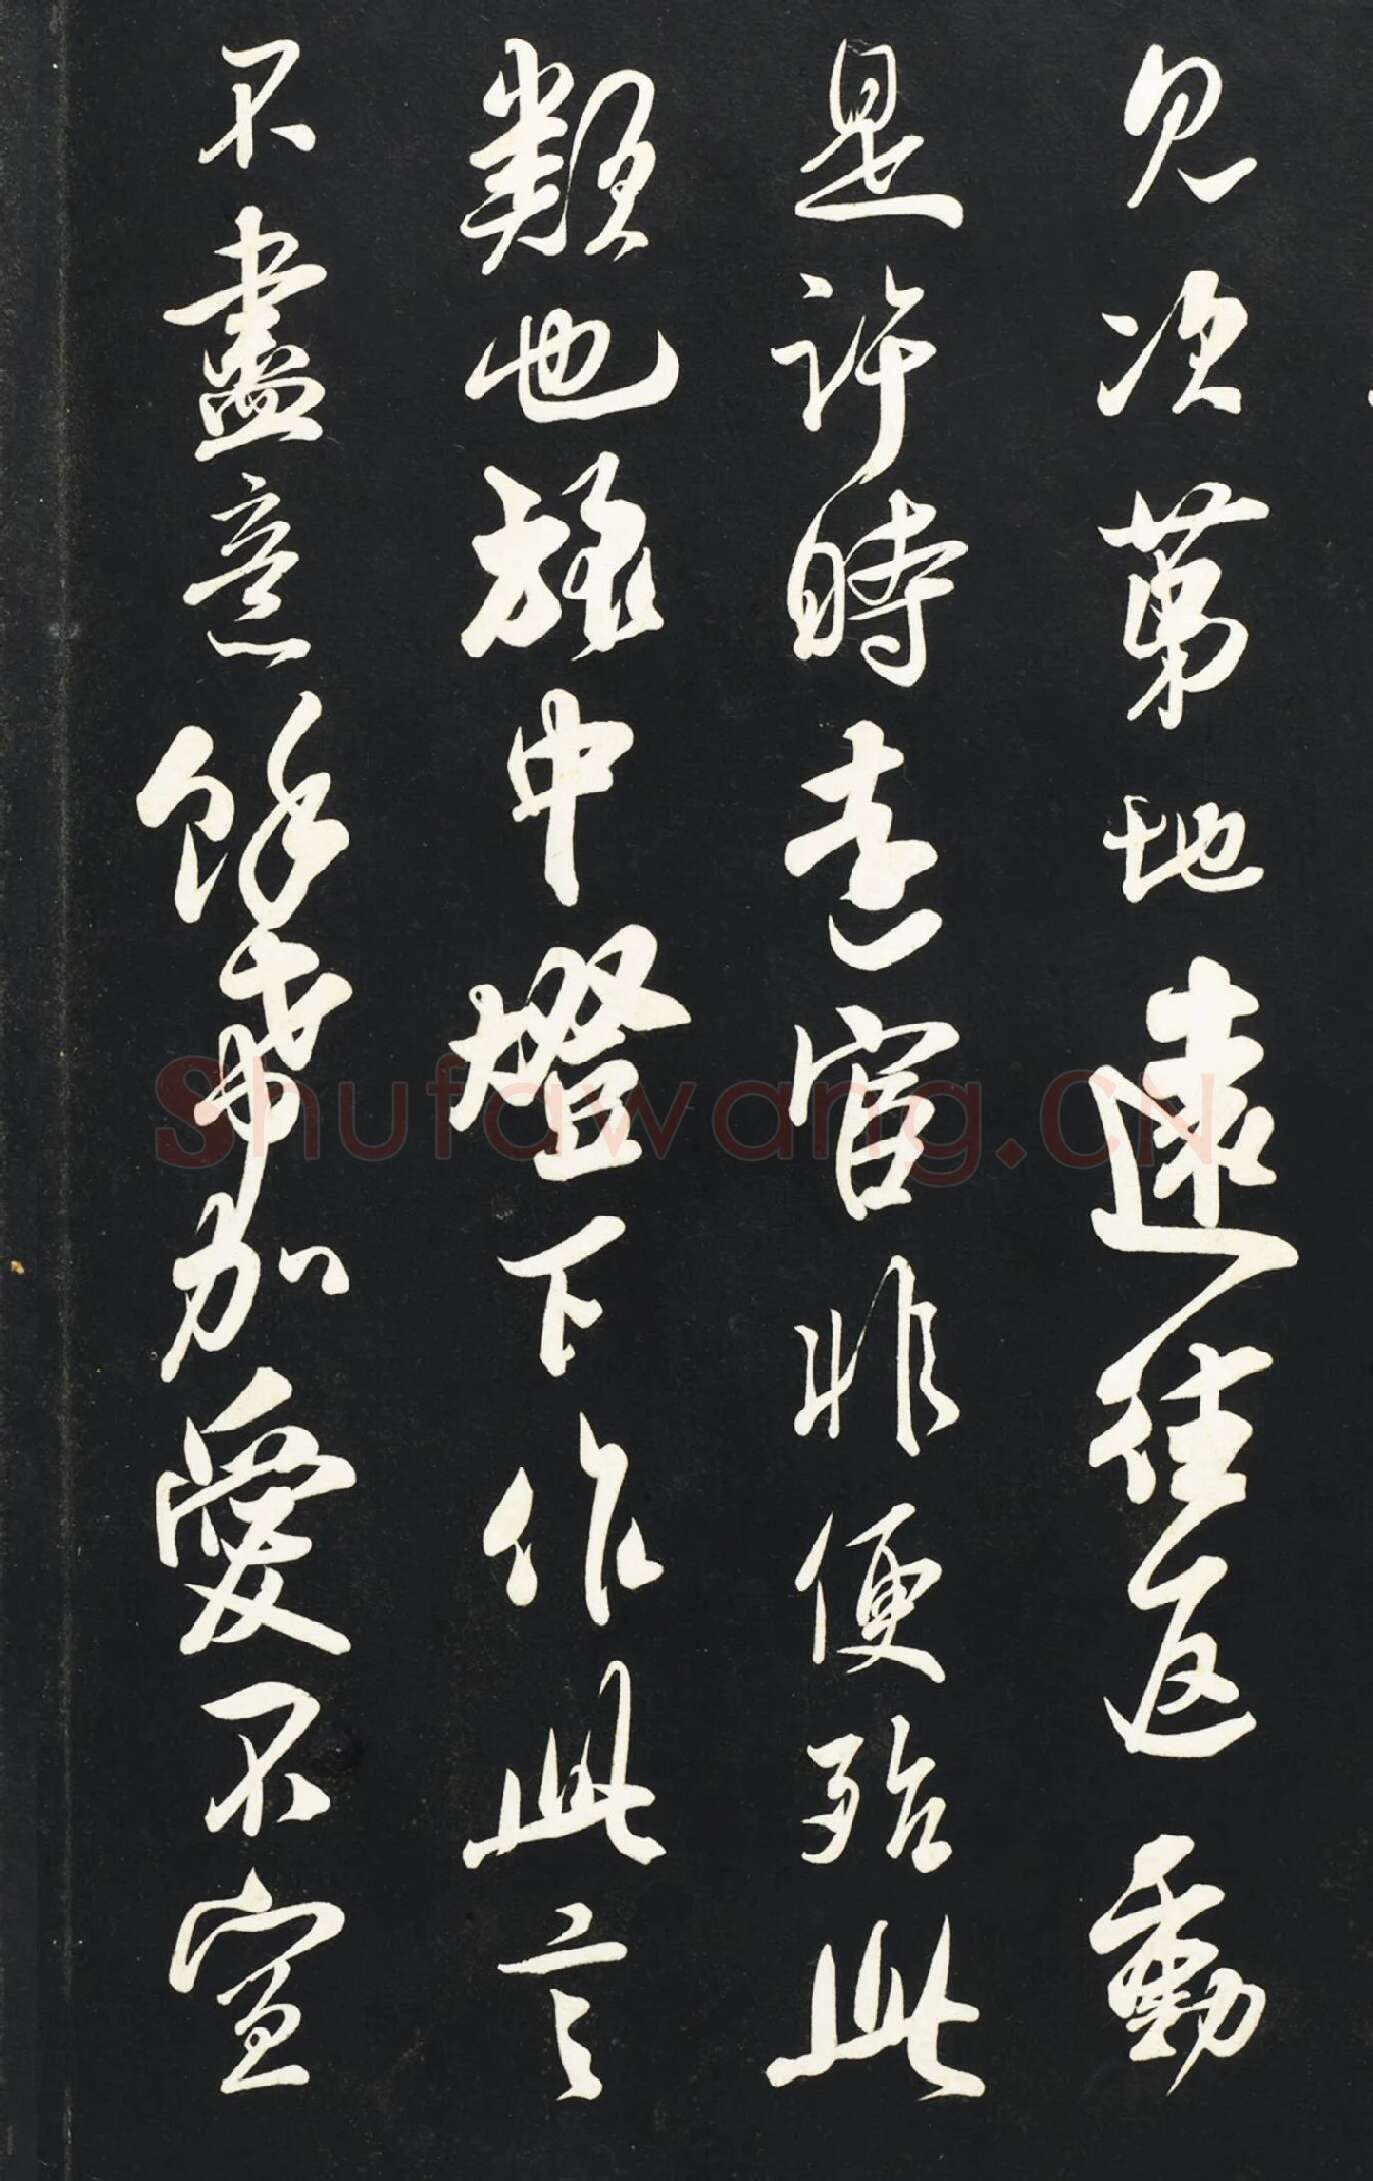 見次第地遠往返動
是許時遠官非便殆此
類也旅中燈下作此言
不盡意餘希加愛不宣
Shufawang.CN